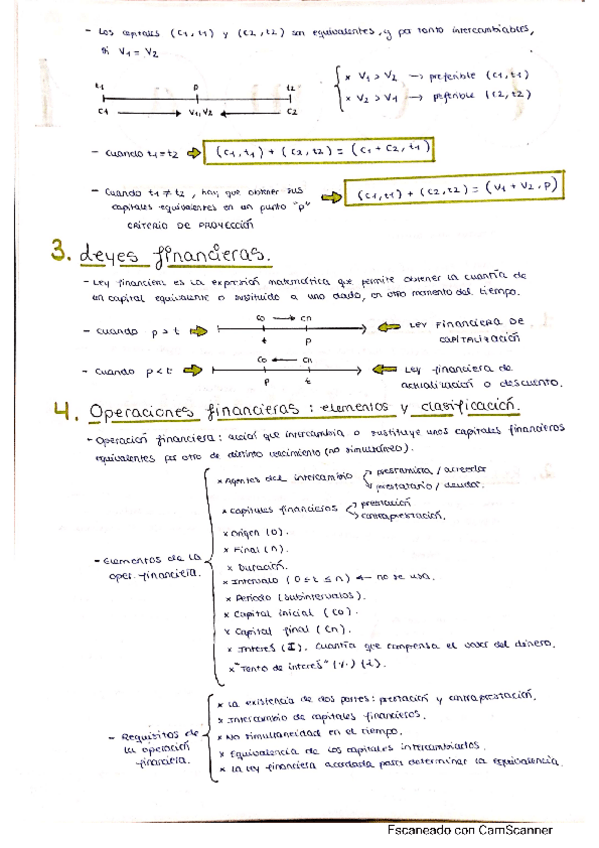 - Los capitales (C1, t1) y (C2, t2) son equivalentes, y por tanto intercambiables,
si V1 = V2
t1 p t2
C1 V1, V2 C2
x V1 > V2 → preferible (C1, t1)
x V2 > V1 → preferible (C2, t2)
- Cuando t1 = t2 (C1, t1) + (C2, t2) = (C1 + C2, t1)
- Cuando t1 ≠ t2, hay que obtener sus
capitales equivalentes en un punto "p" (C1, t1) + (C2, t2) = (V1 + V2, p)
CRITERIO DE PROYECCIÓN
3. Leyes financieras.
- Ley financiera es la expresión matemática que permite obtener la cuantía de
un capital equivalente o sustituido a uno dado, en otro momento del tiempo.
Co → Cn
- Cuando p > t LEY FINANCIERA DE
t p CAPITALIZACIÓN
Co ← Cn
- Cuando p < t Ley financiera de
p t actualización o descuento.
4. Operaciones financieras: elementos y clasificación.
- Operación financiera: acción que intercambia o sustituye unos capitales financieros
equivalentes por otro de distinto vencimiento (no simultáneo).
- Elementos de la
oper. financiera.
x Agentes del intercambio prestamista / acreedor
prestatario / deudor.
x Capitales financieros prestación
contraprestación.
x Origen (0).
x Final (n).
x Duración.
x Intervalo (0 ≤ t ≤ n) ← no se usa.
x Periodo (subintervalos).
x Capital inicial (Co).
x Capital final (Cn).
x Interés (I). Cuantía que compensa el valor del dinero.
x "Tanto de interés" (%) (i).
- Requisitos de
la operación
financiera.
x La existencia de dos partes: prestación y contraprestación.
x Intercambio de capitales financieros.
x No simultaneidad en el tiempo.
x Equivalencia de los capitales intercambiados.
x La ley financiera acordada para determinar la equivalencia.
Escaneado con CamScanner